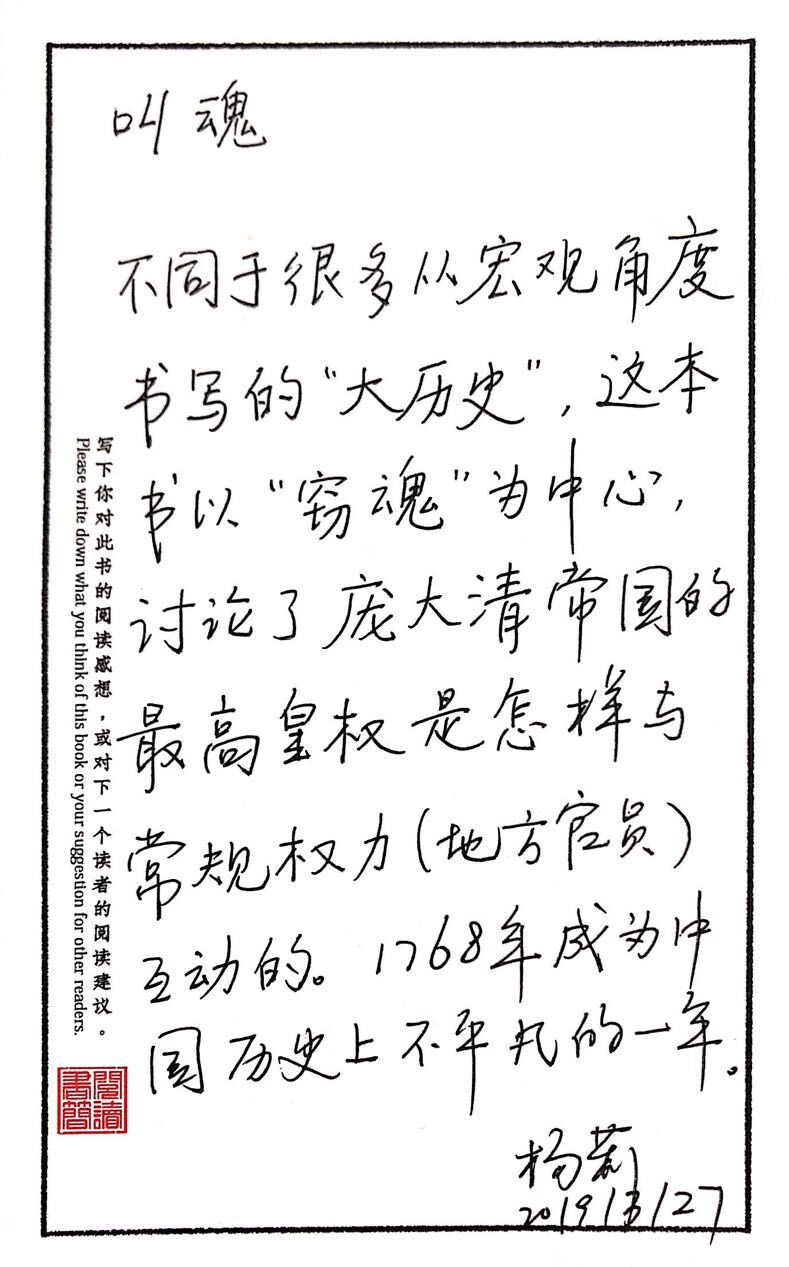 叫魂
不同于很多从宏观角度
书写的“大历史”,这本
书以“窃魂”为中心,
讨论了庞大清帝国的
最高皇权是怎样与
常规权力(地方官员)
互动的。1768年成为中
国历史上不平凡的一年。
杨莉
2019/3/27
写下你对此书的阅读感想,或对下一个读者的阅读建议。
Please write down what you think of this book or your suggestion for other readers.
閱讀
書簡